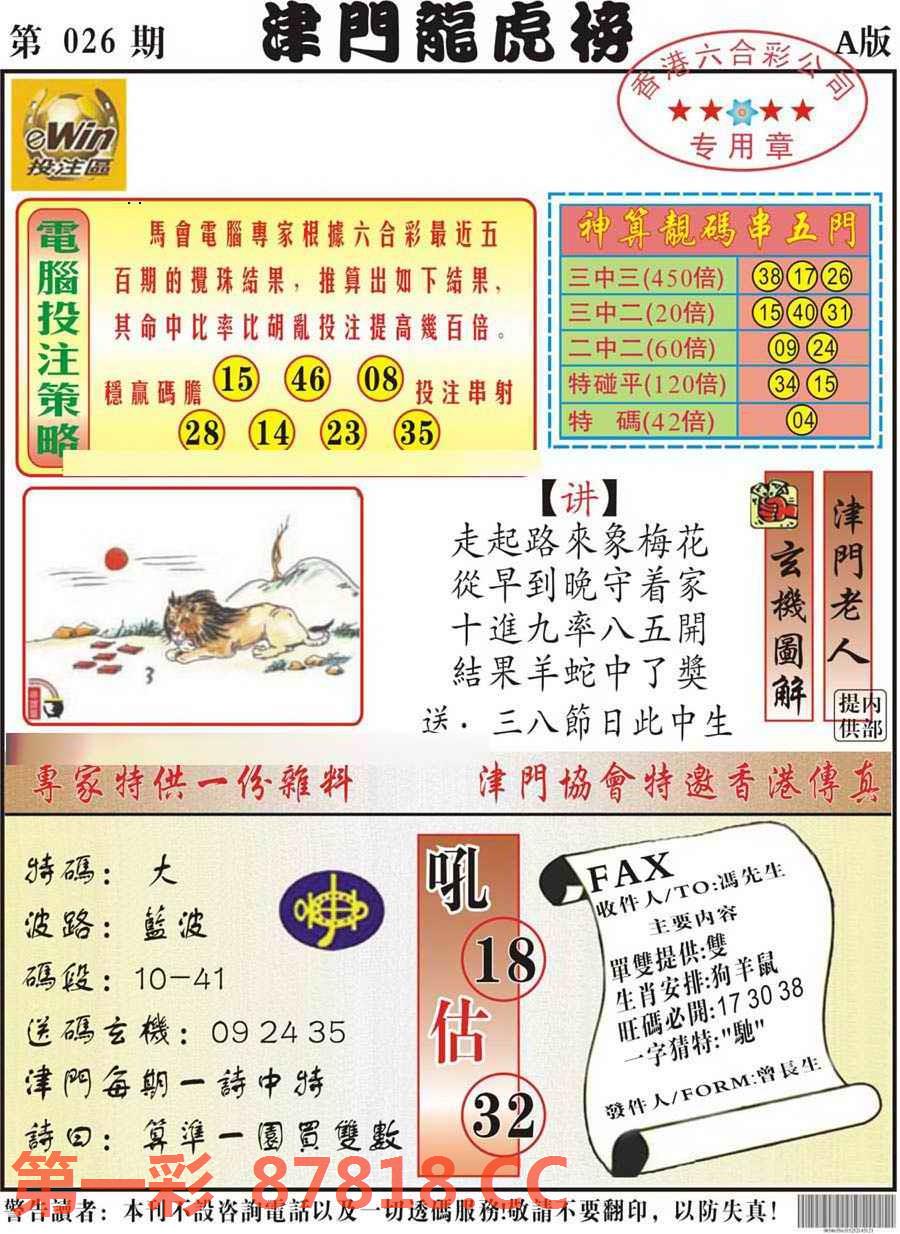 第 026 期
津門龍虎榜
A版
香港六合彩公司
专用章
eWin
投注區
電腦投注策略
馬會電腦專家根據六合彩最近五
百期的攪珠結果，推算出如下結果，
其命中比率比胡亂投注提高幾百倍。
穩贏碼膽 15 46 08 投注串射
28 14 23 35
神算靚碼串五門
三中三(450倍) 38 17 26
三中二(20倍) 15 40 31
二中二(60倍) 09 24
特碰平(120倍) 34 15
特 碼(42倍) 04
3
【讲】
走起路來象梅花
從早到晚守着家
十進九率八五開
結果羊蛇中了獎
送．三八節日此中生
玄機圖解
津門老人
内部提供
專家特供一份雜料
津門協會特邀香港傳真
特碼： 大
波路： 藍波
碼段：10-41
送碼玄機：09 24 35
津門每期一詩中特
詩曰：算準一園買雙數
吼
18
估
32
FAX
收件人/TO:馮先生
主要内容
單雙提供:雙
生肖安排:狗羊鼠
旺碼必開:17 30 38
一字猜特:"馳"
發件人/FORM:曾長生
第一彩 87818.CC
警告讀者：本刊不設咨詢電話以及一切透碼服務!敬請不要翻印，以防失真！